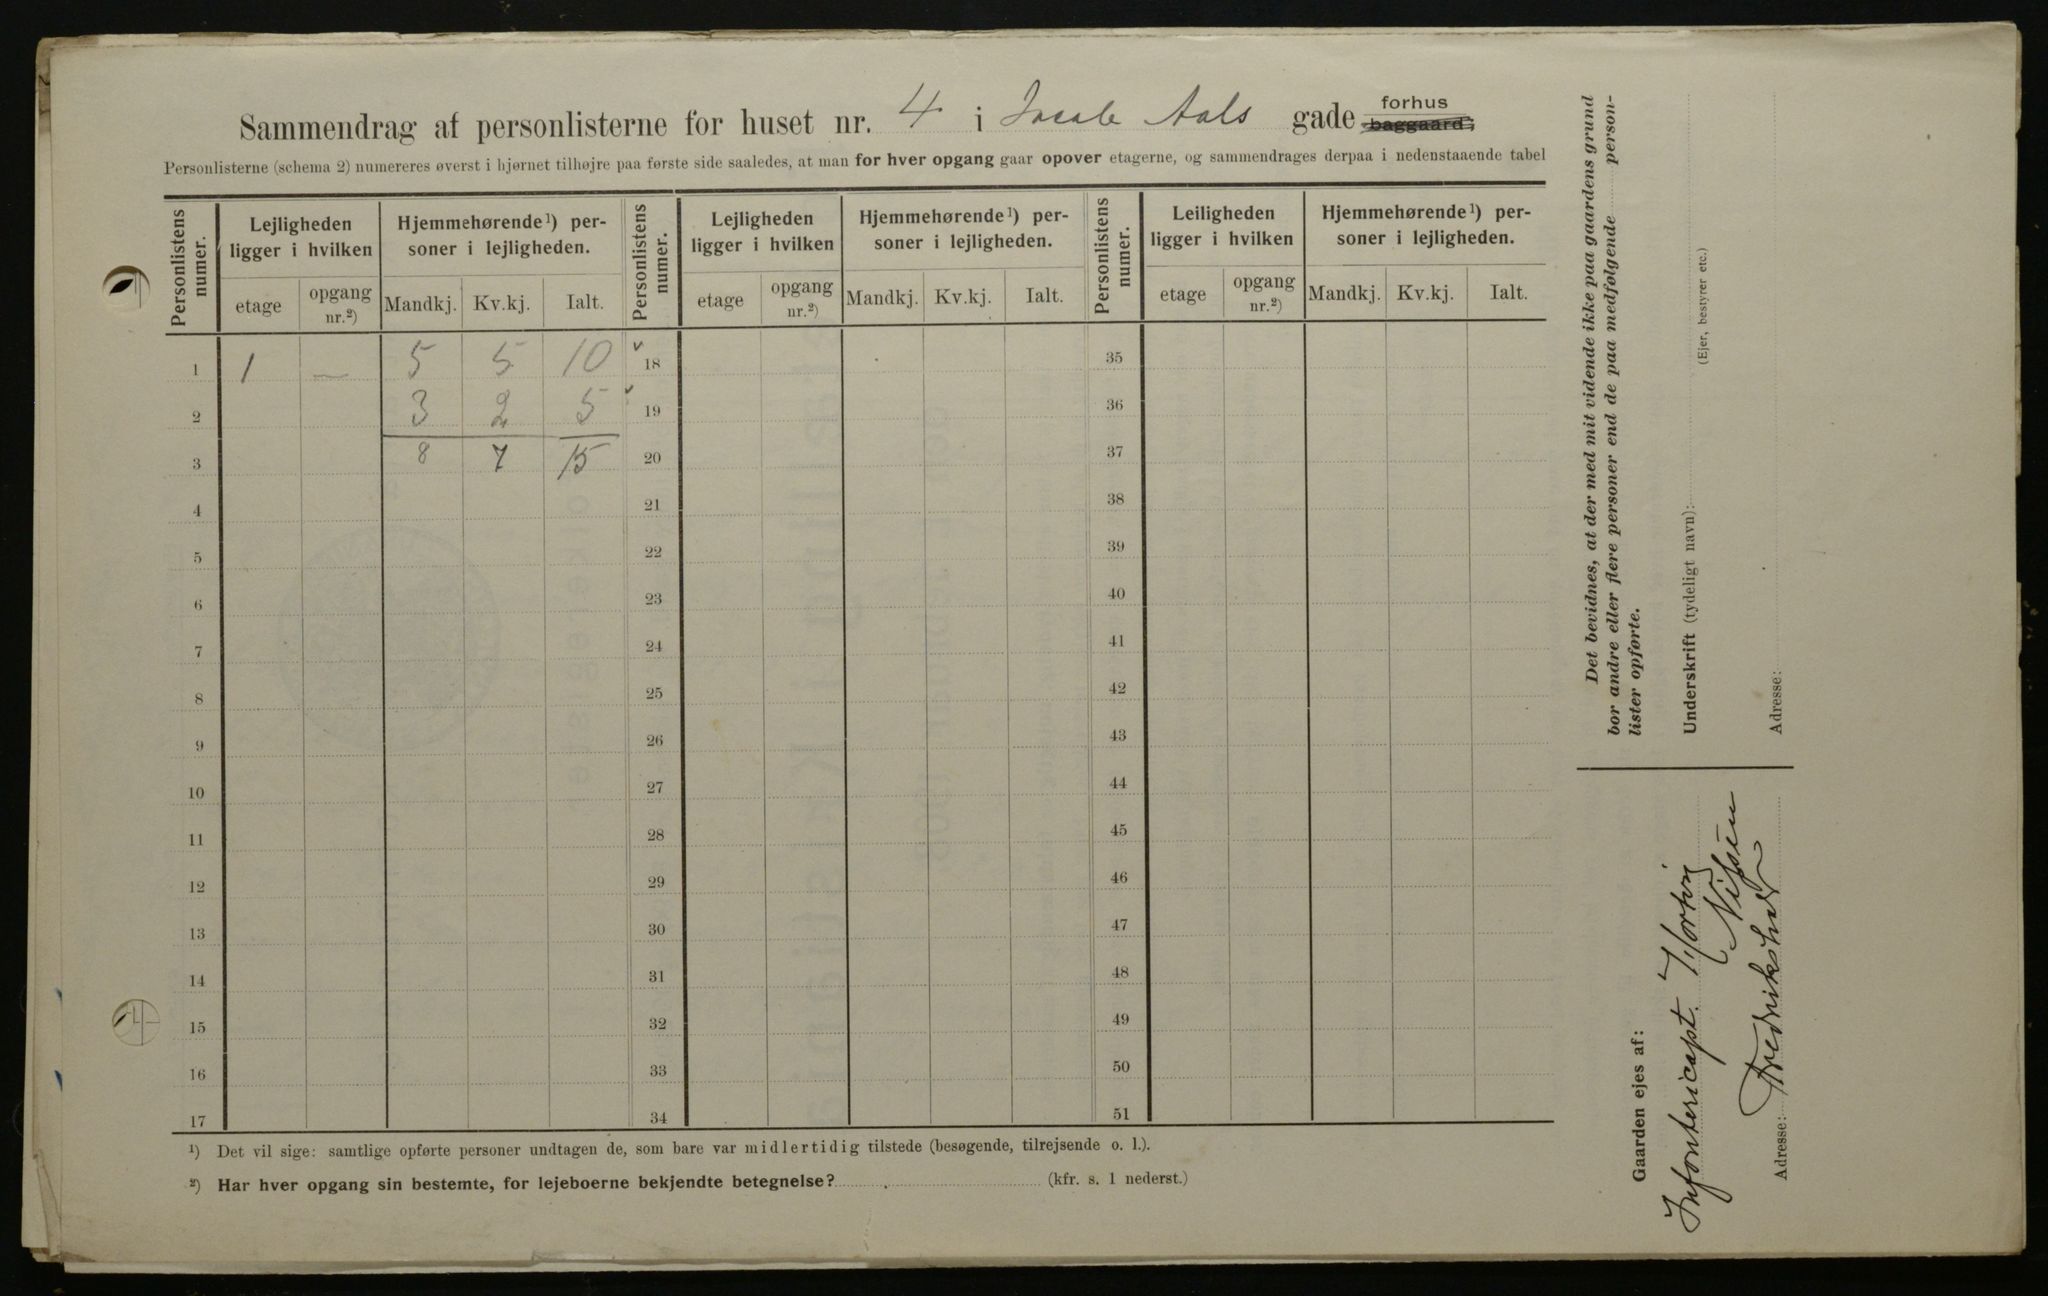 Sammendrag af personlisterne for huset nr. 4 i Jacob Aals gade forhus baggaard;
Personlisterne (schema 2) numereres øverst i hjørnet tilhøjre paa første side saaledes, at man for hver opgang gaar opover etagerne, og sammendrages derpaa i nedenstaaende tabel
Personlistens numer. Lejligheden ligger i hvilken Hjemmehørende¹) personer i lejligheden. Personlistens numer. Lejligheden ligger i hvilken Hjemmehørende¹) personer i lejligheden. Personlistens numer. Leiligheden ligger i hvilken Hjemmehørende¹) personer i lejligheden.
etage opgang nr.²) Mandkj. Kv.kj. Ialt. etage opgang nr.²) Mandkj. Kv.kj. Ialt. etage opgang nr.²) Mandkj. Kv.kj. Ialt.
1 1 — 5 5 10 18 35
2 3 2 5 19 36
3 8 7 15 20 37
4 21 38
5 22 39
6 23 40
7 24 41
8 25 42
9 26 43
10 27 44
11 28 45
12 29 46
13 30 47
14 31 48
15 32 49
16 33 50
17 34 51
¹) Det vil sige: samtlige opførte personer undtagen de, som bare var midlertidig tilstede (besøgende, tilrejsende o. l.).
²) Har hver opgang sin bestemte, for lejeboerne bekjendte betegnelse? (kfr. s. 1 nederst.)
Det bevidnes, at der med mit vidende ikke paa gaardens grund
bor andre eller flere personer end de paa medfølgende person-
lister opførte.
Underskrift (tydeligt navn):
(Ejer, bestyrer etc.)
Adresse:
Gaarden ejes af:
Infantericapt.
Nissen
Adresse: Fredrikshald